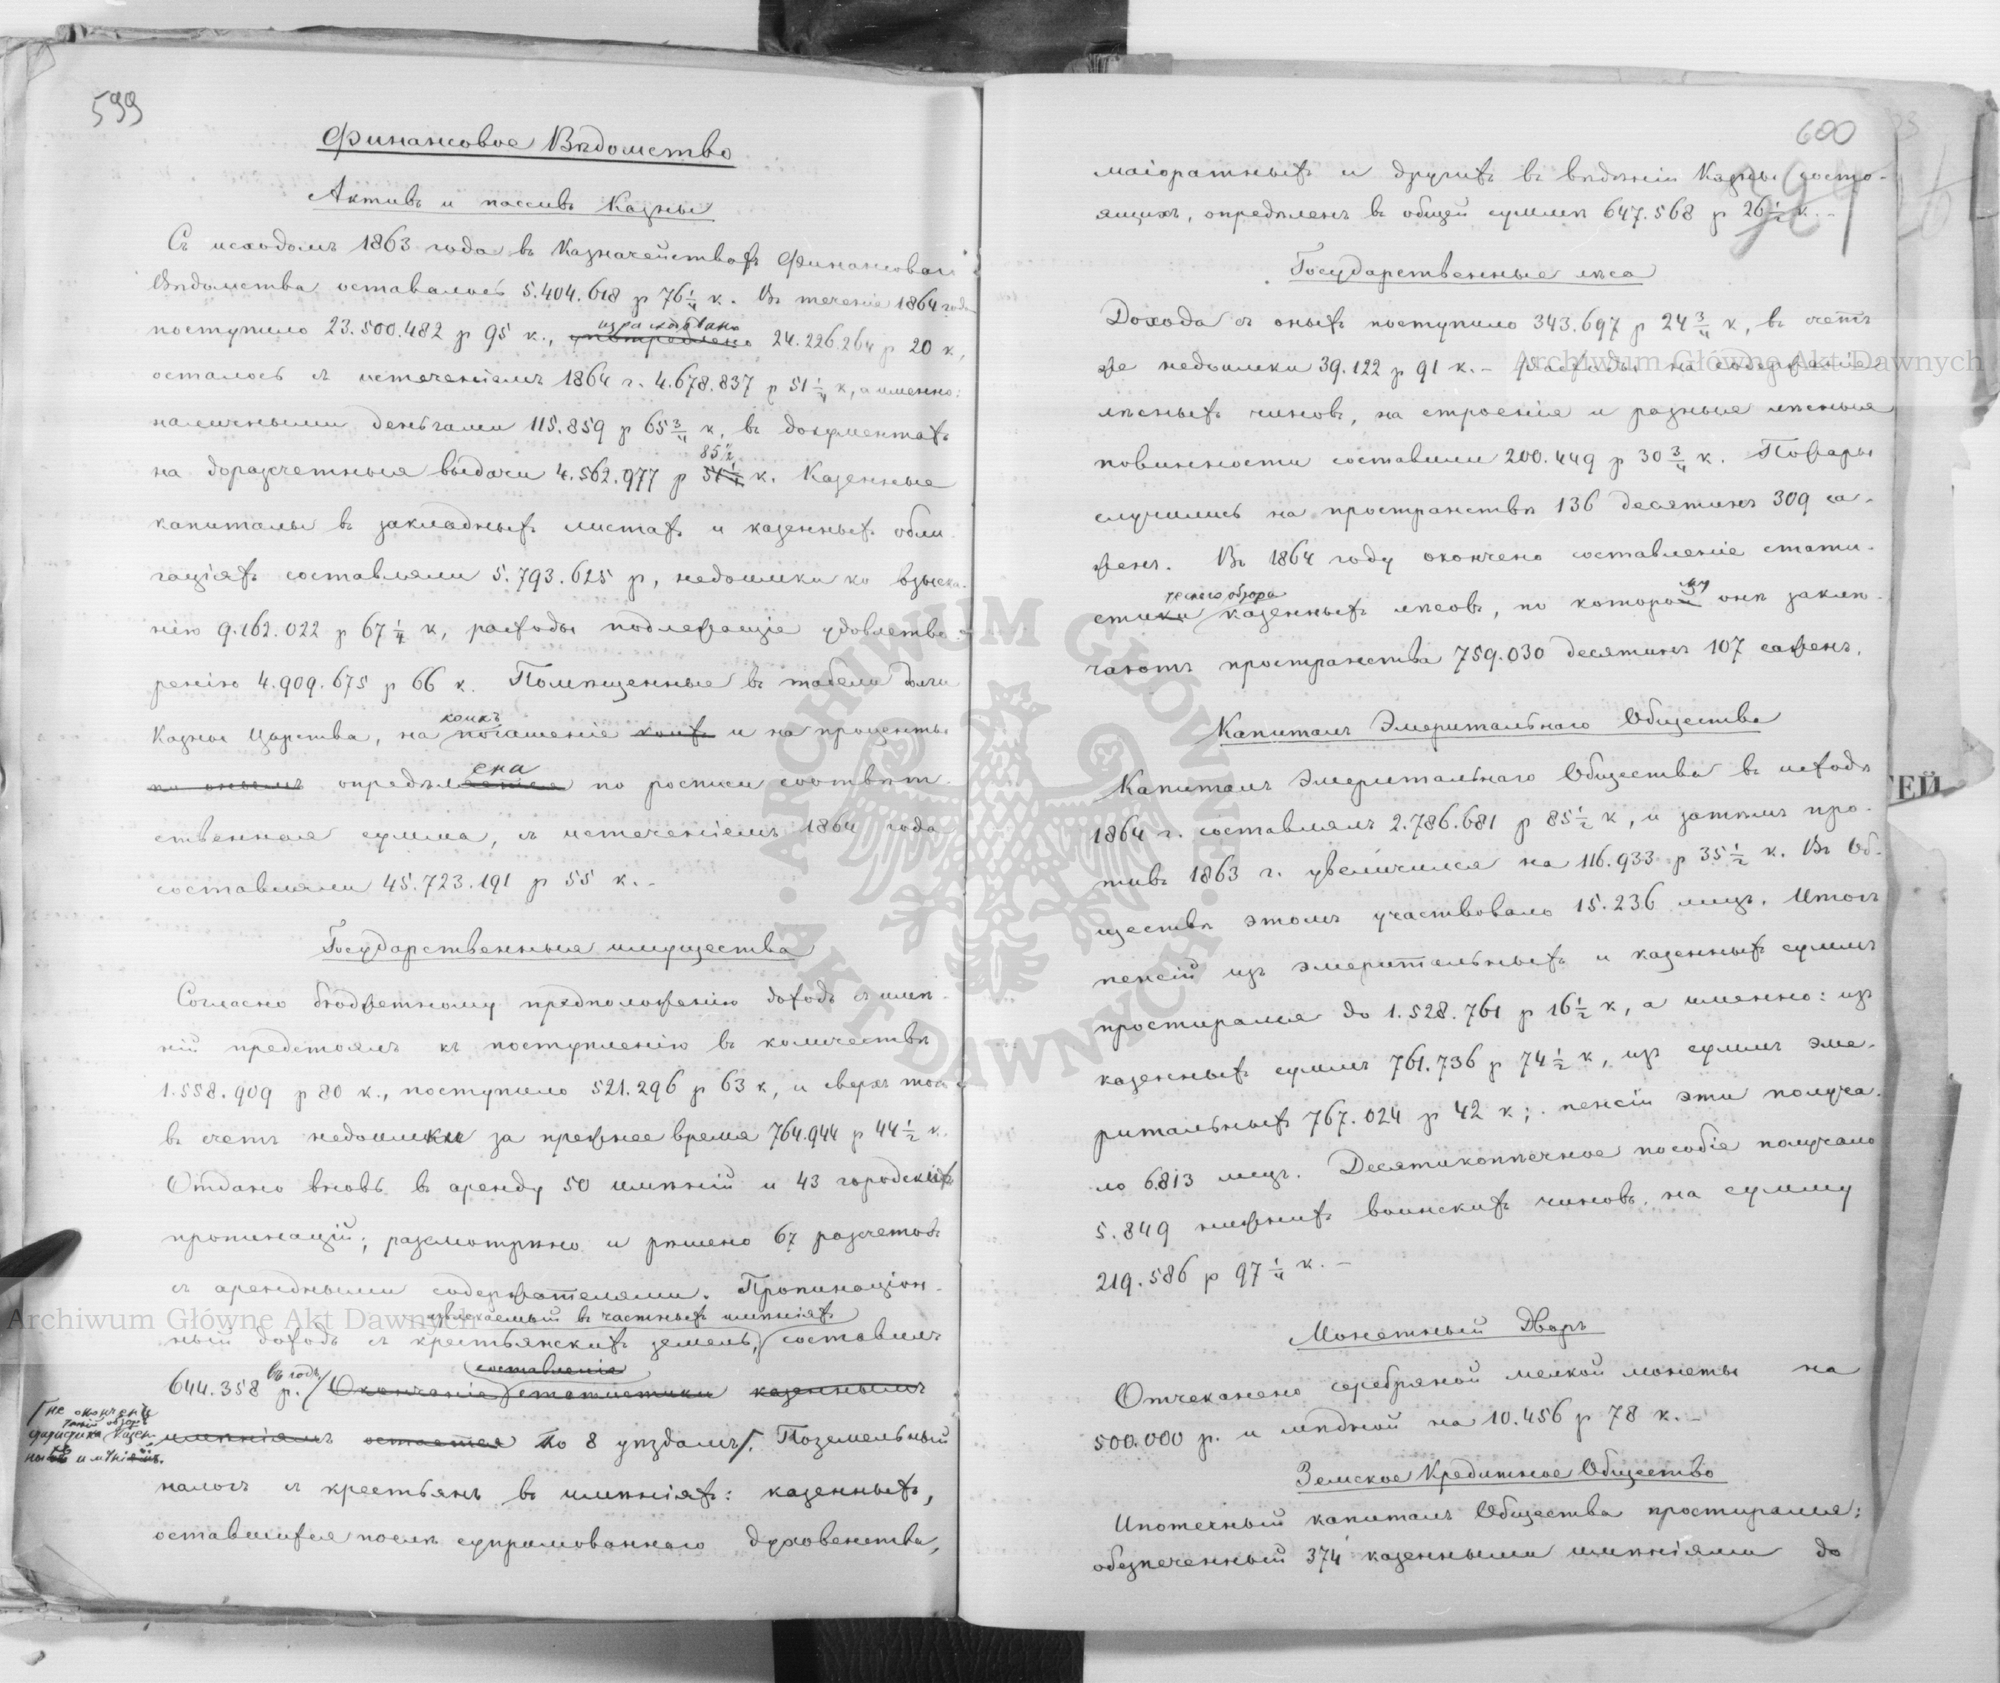 599
Финансовое Вѣдомство
Активъ и пассивъ Казны
Съ исходомъ 1863 года въ Казначействахъ Финансоваго
Вѣдомства оставалось 5.404.618 р 76 1/4 к. Въ теченіе 1864 года
израсходовано
поступило 23.500.482 р 95 к., употреблено 24.226.264 р 20 к,
осталось съ истеченіемъ 1864 г. 4.678.837 р 51 1/4 к, а именно:
наличными деньгами 115.859 р 65 3/4 к, въ документахъ
85 1/2
на доразчетныя выдачи 4.562.977 р 51 1/4 к. Казенные
капиталы въ закладныхъ листахъ и казенныхъ обли-
гаціяхъ составляли 5.793.625 р, недоимки ко взыска-
нію 9.162.022 р 67 1/4 к, расходы подлежащіе удовлетво-
ренію 4.909.675 р 66 к. Помѣщенные въ табели долги
коихъ
Казны Царства, на погашеніе коихъ и на проценты
ена
по онымъ опредѣляется по росписи соотвѣт-
ственная сумма, съ истеченіемъ 1864 года
составляли 45.723.191 р 55 к.-
Государственныя имущества
Согласно бюджетному предположенію доходъ съ имѣ-
ній предстоялъ къ поступленію въ количествѣ
1.558.909 р 80 к., поступило 521.296 р 63 к, и сверхъ того
въ счетъ недоимки за прежнее время 764.944 р 44 1/2 к.
Отдано вновь въ аренду 50 имѣній и 43 городскихъ
пропинацій; разсмотрѣно и рѣшено 67 разчетовъ
съ арендными содержателями. Пропинаціон-
извлекаемый въ частныхъ имѣніяхъ
ный доходъ съ крестьянскихъ земель, составилъ
въ годъ составленія
644.358 р. Окончаніе статистики казеннымъ
не оконченъ
имѣніямъ остается по 8 уѣздамъ. Поземельный
налогъ съ крестьянъ въ имѣніяхъ: казенныхъ,
оставшихся послѣ супримованнаго духовенства,
600
маіоратныхъ и другихъ въ вѣдѣніи Казны состо-
ящихъ, опредѣленъ въ общей суммѣ 647.568 р 26 1/2 к.-
Государственные лѣса
Дохода съ оныхъ поступило 343.697 р 24 3/4 к, въ счетъ
же недоимки 39.122 р 91 к. - Расходы на содержаніе
лѣсныхъ чиновъ, на строенія и разныя лѣсныя
повинности составили 200.449 р 30 3/4 к. Пожары
случились на пространствѣ 136 десятинъ 309 са-
женъ. Въ 1864 году окончено составленіе стати-
ческаго обзора му
стики казенныхъ лѣсовъ, по которой они заклю-
чаютъ пространства 759.030 десятинъ 107 саженъ.
Капиталъ Эмеритальнаго Общества
Капиталъ Эмеритальнаго Общества въ исходѣ
1864 г. составлялъ 2.786.681 р 85 1/2 к, и затѣмъ про-
тивъ 1863 г. увеличился на 116.933 р 35 1/2 к. Въ Об-
ществѣ этомъ участвовало 15.236 лицъ. Итогъ
пенсій изъ эмеритальныхъ и казенныхъ суммъ
простирался до 1.528.761 р 16 1/2 к, а именно: изъ
казенныхъ суммъ 761.736 р 74 1/2 к, изъ суммъ эме-
ритальныхъ 767.024 р 42 к; пенсіи эти получа-
ло 6813 лицъ. Десятикопѣечное пособіе получало
5.849 нижнихъ воинскихъ чиновъ, на сумму
219.586 р 97 1/4 к. -
Монетный Дворъ
Отчеканено серебряной мелкой монеты на
500.000 р. и мѣдной на 10.456 р 78 к. -
Земское Кредитное Общество
Ипотечный капиталъ Общества простирался:
обезпеченный 374 казенными имѣніями до
ГЕЙ
Archiwum Główne Akt Dawnych
Archiwum Główne Akt Dawnych
ARCHIWUM GŁÓWNE AKT DAWNYCH